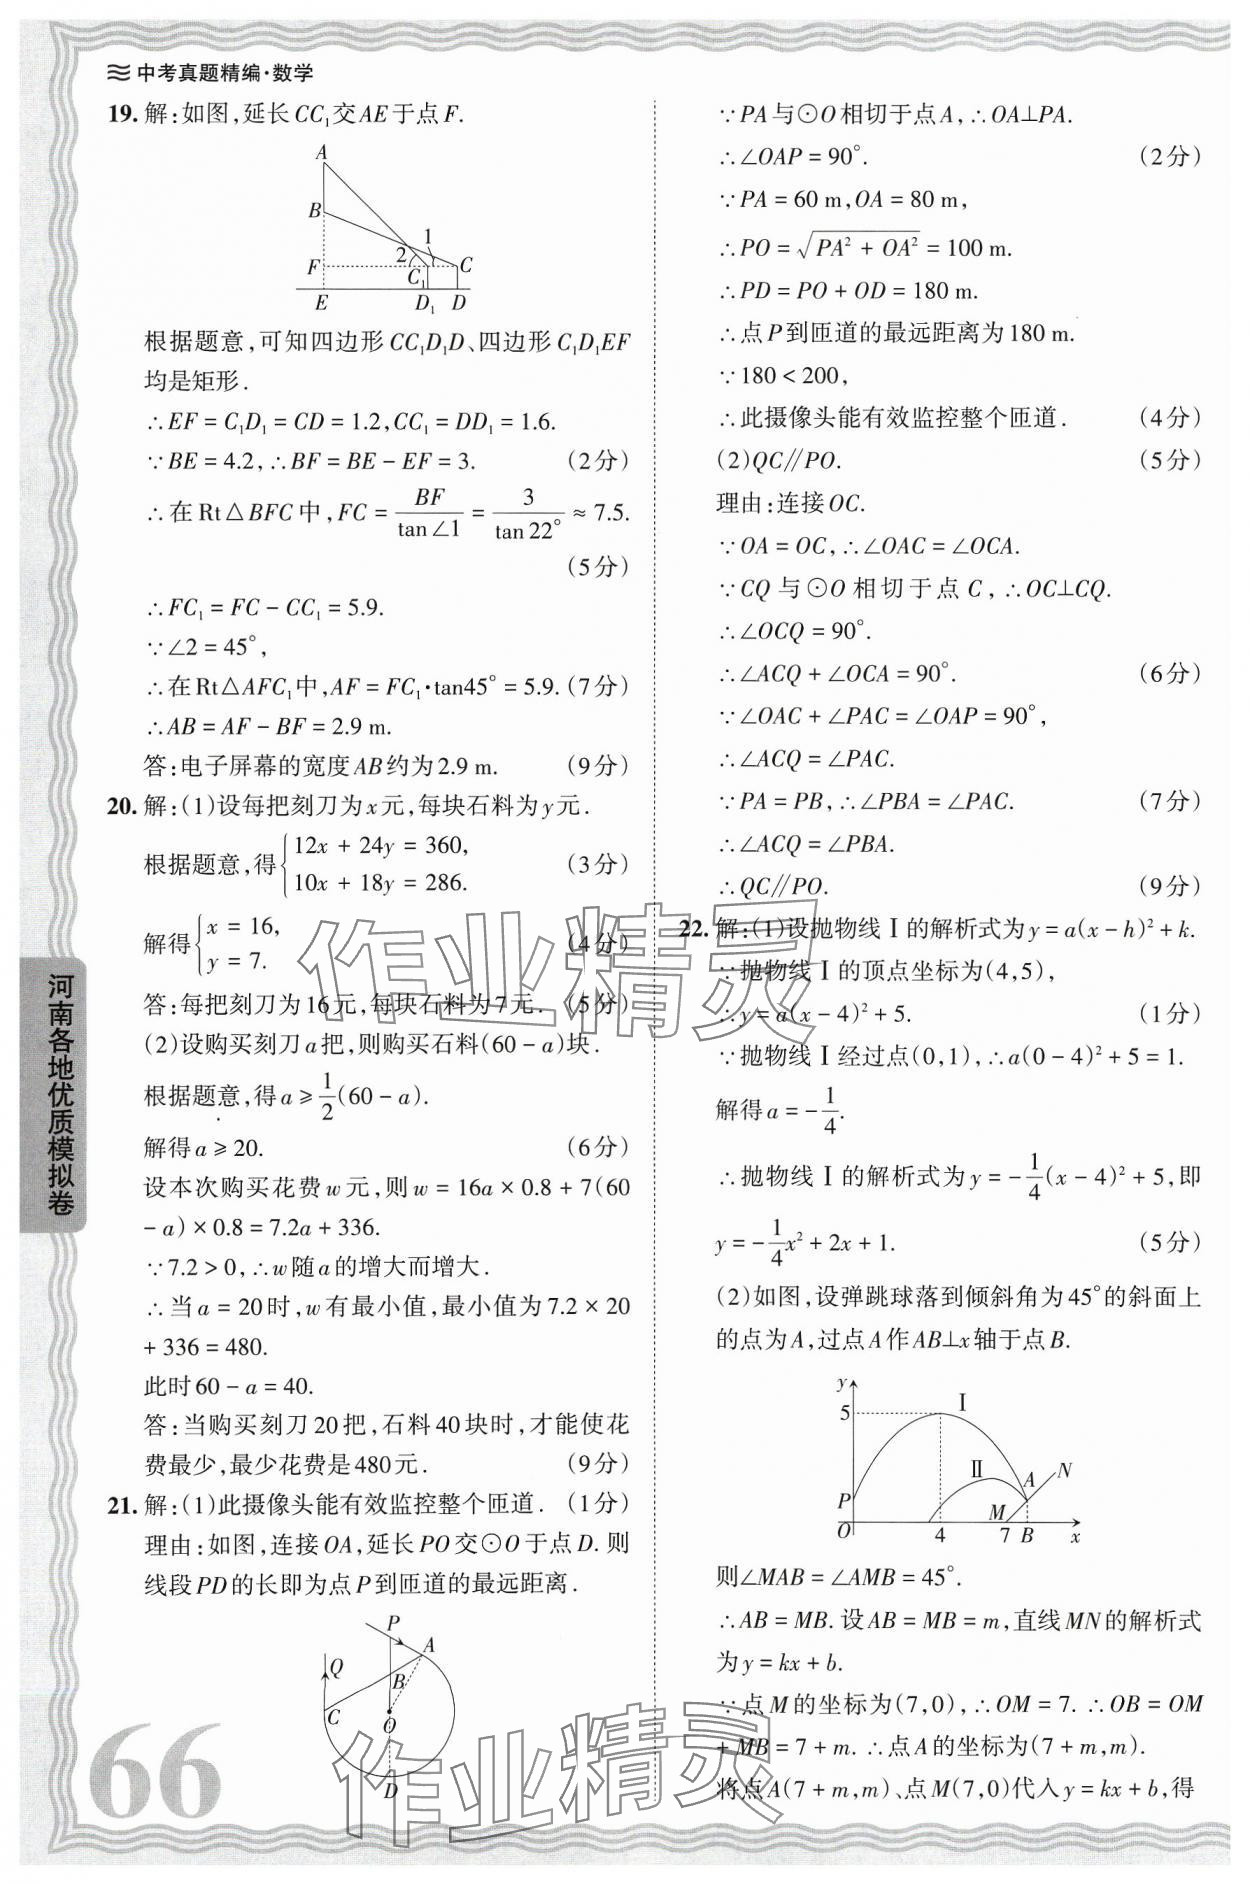 中考真题精编·数学
19. 解:如图,延长CC₁交AE于点F.
A
B
1
2
F
C₁
C
E
D₁ D
根据题意,可知四边形CC₁D₁D、四边形C₁D₁EF
均是矩形.
∴EF=C₁D₁=CD=1.2,CC₁=DD₁=1.6.
∵BE=4.2,∴BF=BE-EF=3. (2分)
∴在Rt△BFC中,FC=BF/tan∠1=3/tan22°≈7.5.
(5分)
∴FC₁=FC-CC₁=5.9.
∵∠2=45°,
∴在Rt△AFC₁中,AF=FC₁·tan45°=5.9.(7分)
∴AB=AF-BF=2.9 m.
答:电子屏幕的宽度AB约为2.9 m. (9分)
20. 解:(1)设每把刻刀为x元,每块石料为y元.
根据题意,得{12x+24y=360,
10x+18y=286. (3分)
解得{x=16,
y=7. (4分)
答:每把刻刀为16元,每块石料为7元. (5分)
(2)设购买刻刀a把,则购买石料(60-a)块.
根据题意,得a≥1/2(60-a).
解得a≥20. (6分)
设本次购买花费w元,则w=16a×0.8+7(60
-a)×0.8=7.2a+336.
∵7.2>0,∴w随a的增大而增大.
∴当a=20时,w有最小值,最小值为7.2×20
+336=480.
此时60-a=40.
答:当购买刻刀20把,石料40块时,才能使花
费最少,最少花费是480元. (9分)
21. 解:(1)此摄像头能有效监控整个匝道. (1分)
理由:如图,连接OA,延长PO交⊙O于点D.则
线段PD的长即为点P到匝道的最远距离.
P
A
Q
B
C
O
D
∵PA与⊙O相切于点A,∴OA⊥PA.
∴∠OAP=90°. (2分)
∵PA=60 m,OA=80 m,
∴PO=√(PA²+OA²)=100 m.
∴PD=PO+OD=180 m.
∴点P到匝道的最远距离为180 m.
∵180<200,
∴此摄像头能有效监控整个匝道. (4分)
(2)QC∥PO. (5分)
理由:连接OC.
∵OA=OC,∴∠OAC=∠OCA.
∵CQ与⊙O相切于点C,∴OC⊥CQ.
∴∠OCQ=90°.
∴∠ACQ+∠OCA=90°. (6分)
∵∠OAC+∠PAC=∠OAP=90°,
∴∠ACQ=∠PAC.
∵PA=PB,∴∠PBA=∠PAC. (7分)
∴∠ACQ=∠PBA.
∴QC∥PO. (9分)
22. 解:(1)设抛物线Ⅰ的解析式为y=a(x-h)²+k.
∵抛物线Ⅰ的顶点坐标为(4,5),
∴y=a(x-4)²+5. (1分)
∵抛物线Ⅰ经过点(0,1),∴a(0-4)²+5=1.
解得a=-1/4.
∴抛物线Ⅰ的解析式为y=-1/4(x-4)²+5,即
y=-1/4x²+2x+1. (5分)
(2)如图,设弹跳球落到倾斜角为45°的斜面上
的点为A,过点A作AB⊥x轴于点B.
y
5
Ⅰ
Ⅱ
A
N
P
M
O
4
7 B
x
则∠MAB=∠AMB=45°.
∴AB=MB.设AB=MB=m,直线MN的解析式
为y=kx+b.
∵点M的坐标为(7,0),∴OM=7.∴OB=OM
+MB=7+m.∴点A的坐标为(7+m,m).
将点A(7+m,m)、点M(7,0)代入y=kx+b,得
河南各地优质模拟卷
66
作业精灵
作业精灵